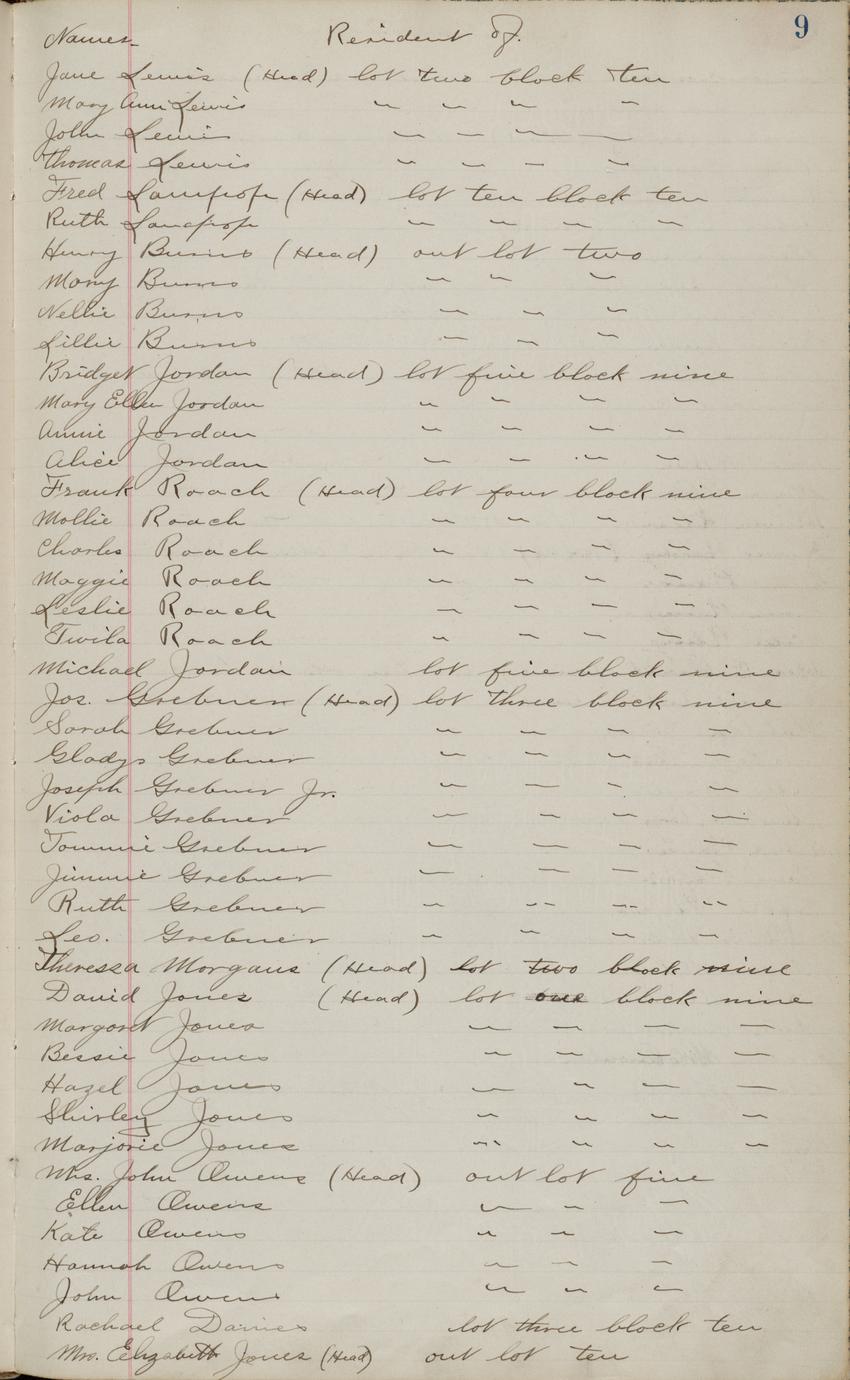 9
Names Resident of.
Jane Lewis (Head) lot two block ten
Mary Ann Lewis " " " "
John Lewis " " " "
Thomas Lewis " " " "
Fred (Head) lot ten block ten
Ruth " " " "
Henry Burns (Head) out lot two
Mary Burns " " "
Nellie Burns " " "
Lillie Burns " " "
Bridget Jordan (Head) lot five block nine
Mary Ellen Jordan " " " "
Annie Jordan " " " "
Alice Jordan " " " "
Frank Roach (Head) lot four block nine
Mollie Roach " " " "
Charles Roach " " " "
Maggie Roach " " " "
Leslie Roach " " " "
Twila Roach " " " "
Michael Jordan lot five block nine
Jos. Grebner (Head) lot three block nine
Sarah Grebner " " " "
Gladys Grebner " " " "
Joseph Grebner Jr. " " " "
Viola Grebner " " " "
Tommie Grebner " " " "
Jimmie Grebner " " " "
Ruth Grebner " " " "
Leo. Grebner " " " "
Theressa Morgans (Head) lot two block nine
David Jones (Head) lot one block nine
Margaret Jones " " " "
Bessie Jones " " " "
Hazel Jones " " " "
Shirley Jones " " " "
Marjorie Jones " " " "
Mrs. John Owens (Head) out lot five
Ellen Owens " " "
Kate Owens " " "
Hannah Owens " " "
John Owens " " "
Rachael Davies lot three block ten
Mrs. Elizabeth Jones (Head) out lot ten